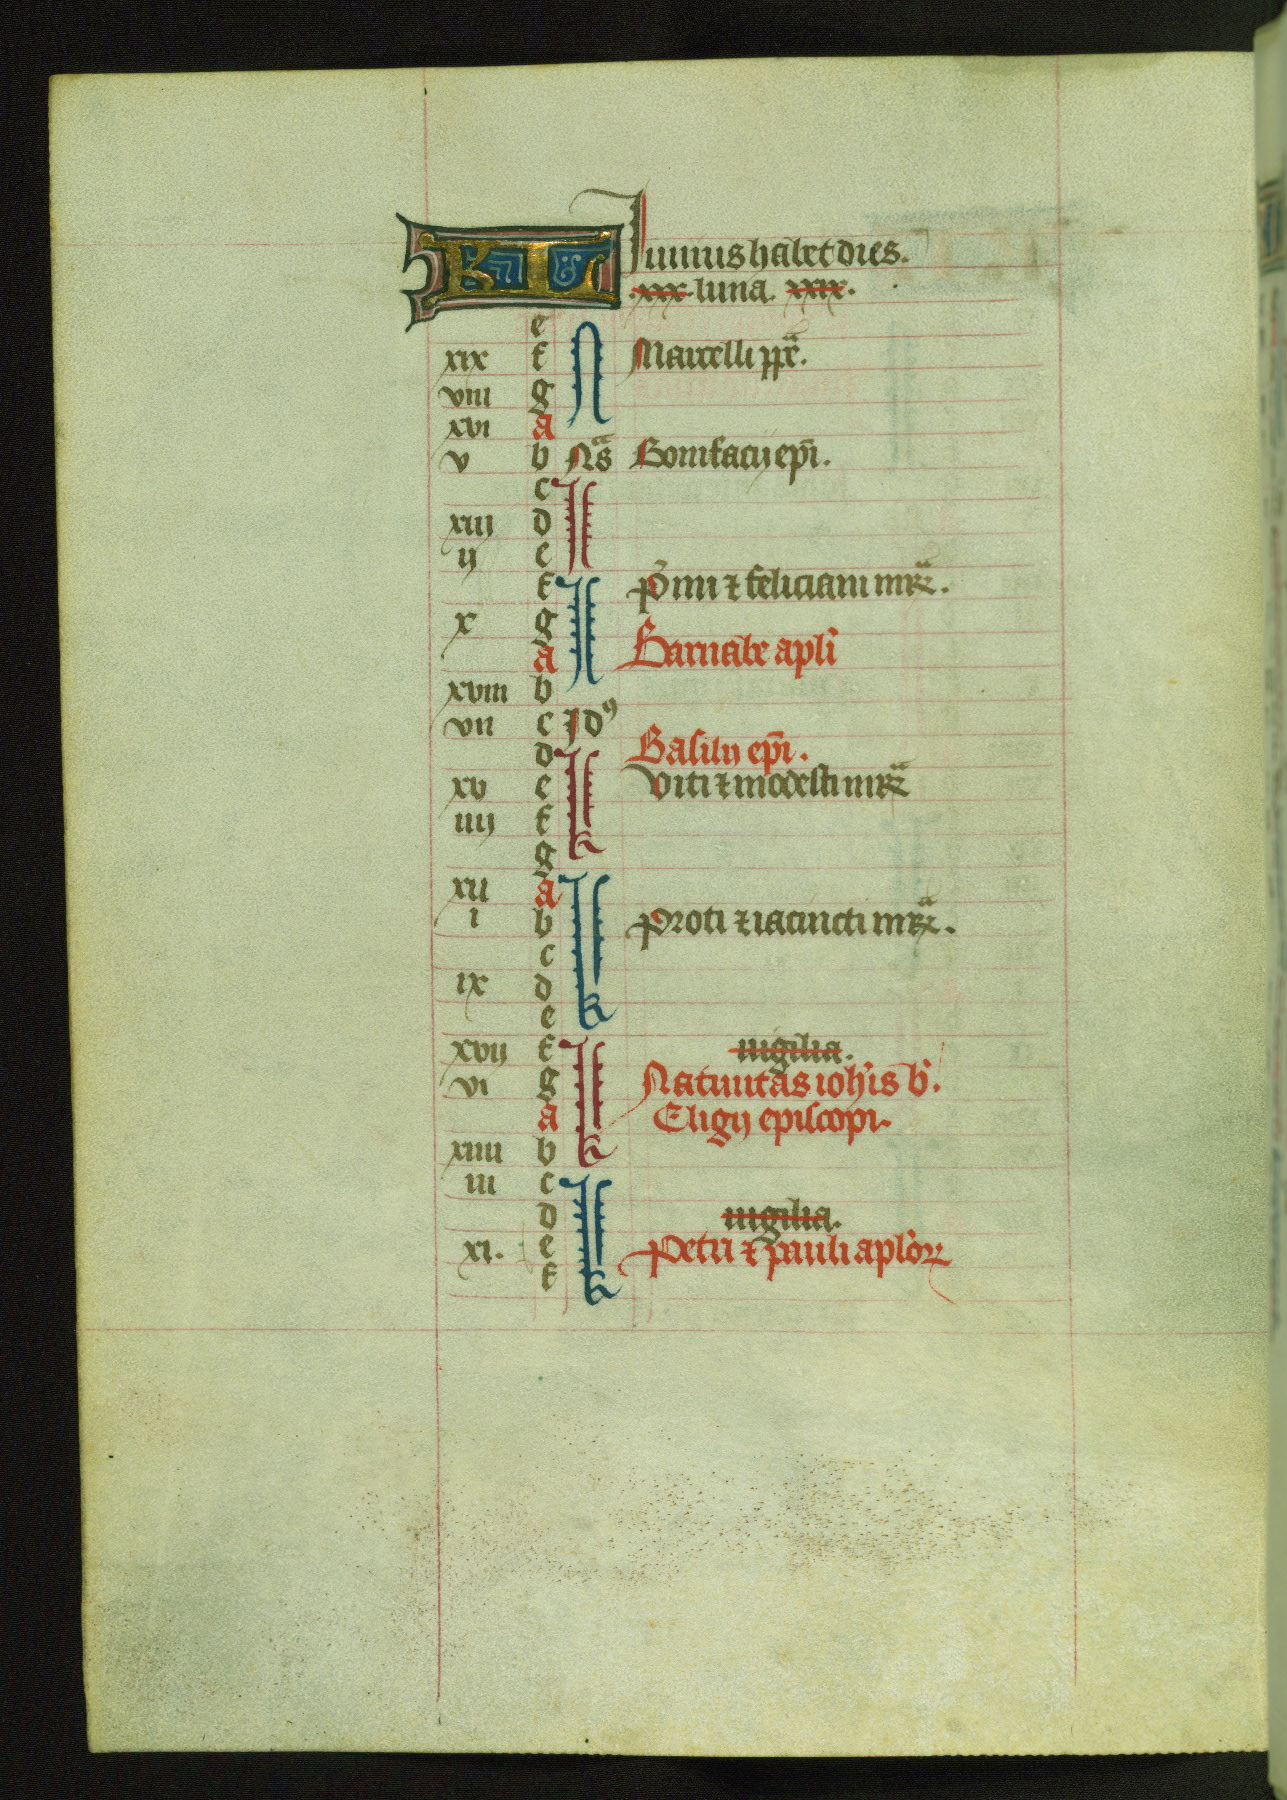 KL Iunius habet dies.
.xxx. luna. xxix.
e
xix f N Marcelli pp̄e.
viii g
xvi a
v b Nas Bonifacij ep̄i.
c I
xiij d
ij e
f I P̄mi ⁊ feliciani mr̄.
x g
a Barnabe apl̄i
xviii b
vii c Idꝰ
d I Basilij ep̄i.
xv e Viti ⁊ modesti mr̄
iiij f
g k
xii a I
i b Proti ⁊ iacincti mr̄.
c
ix d
e k
xvij f I uigilia.
vi g Natiuitas ioh̄is b̄.
a Eligij episcopi.
xiiii b k
iii c I
d uigilia.
xi. e Petri ⁊ pauli apl̄oꝝ
f k